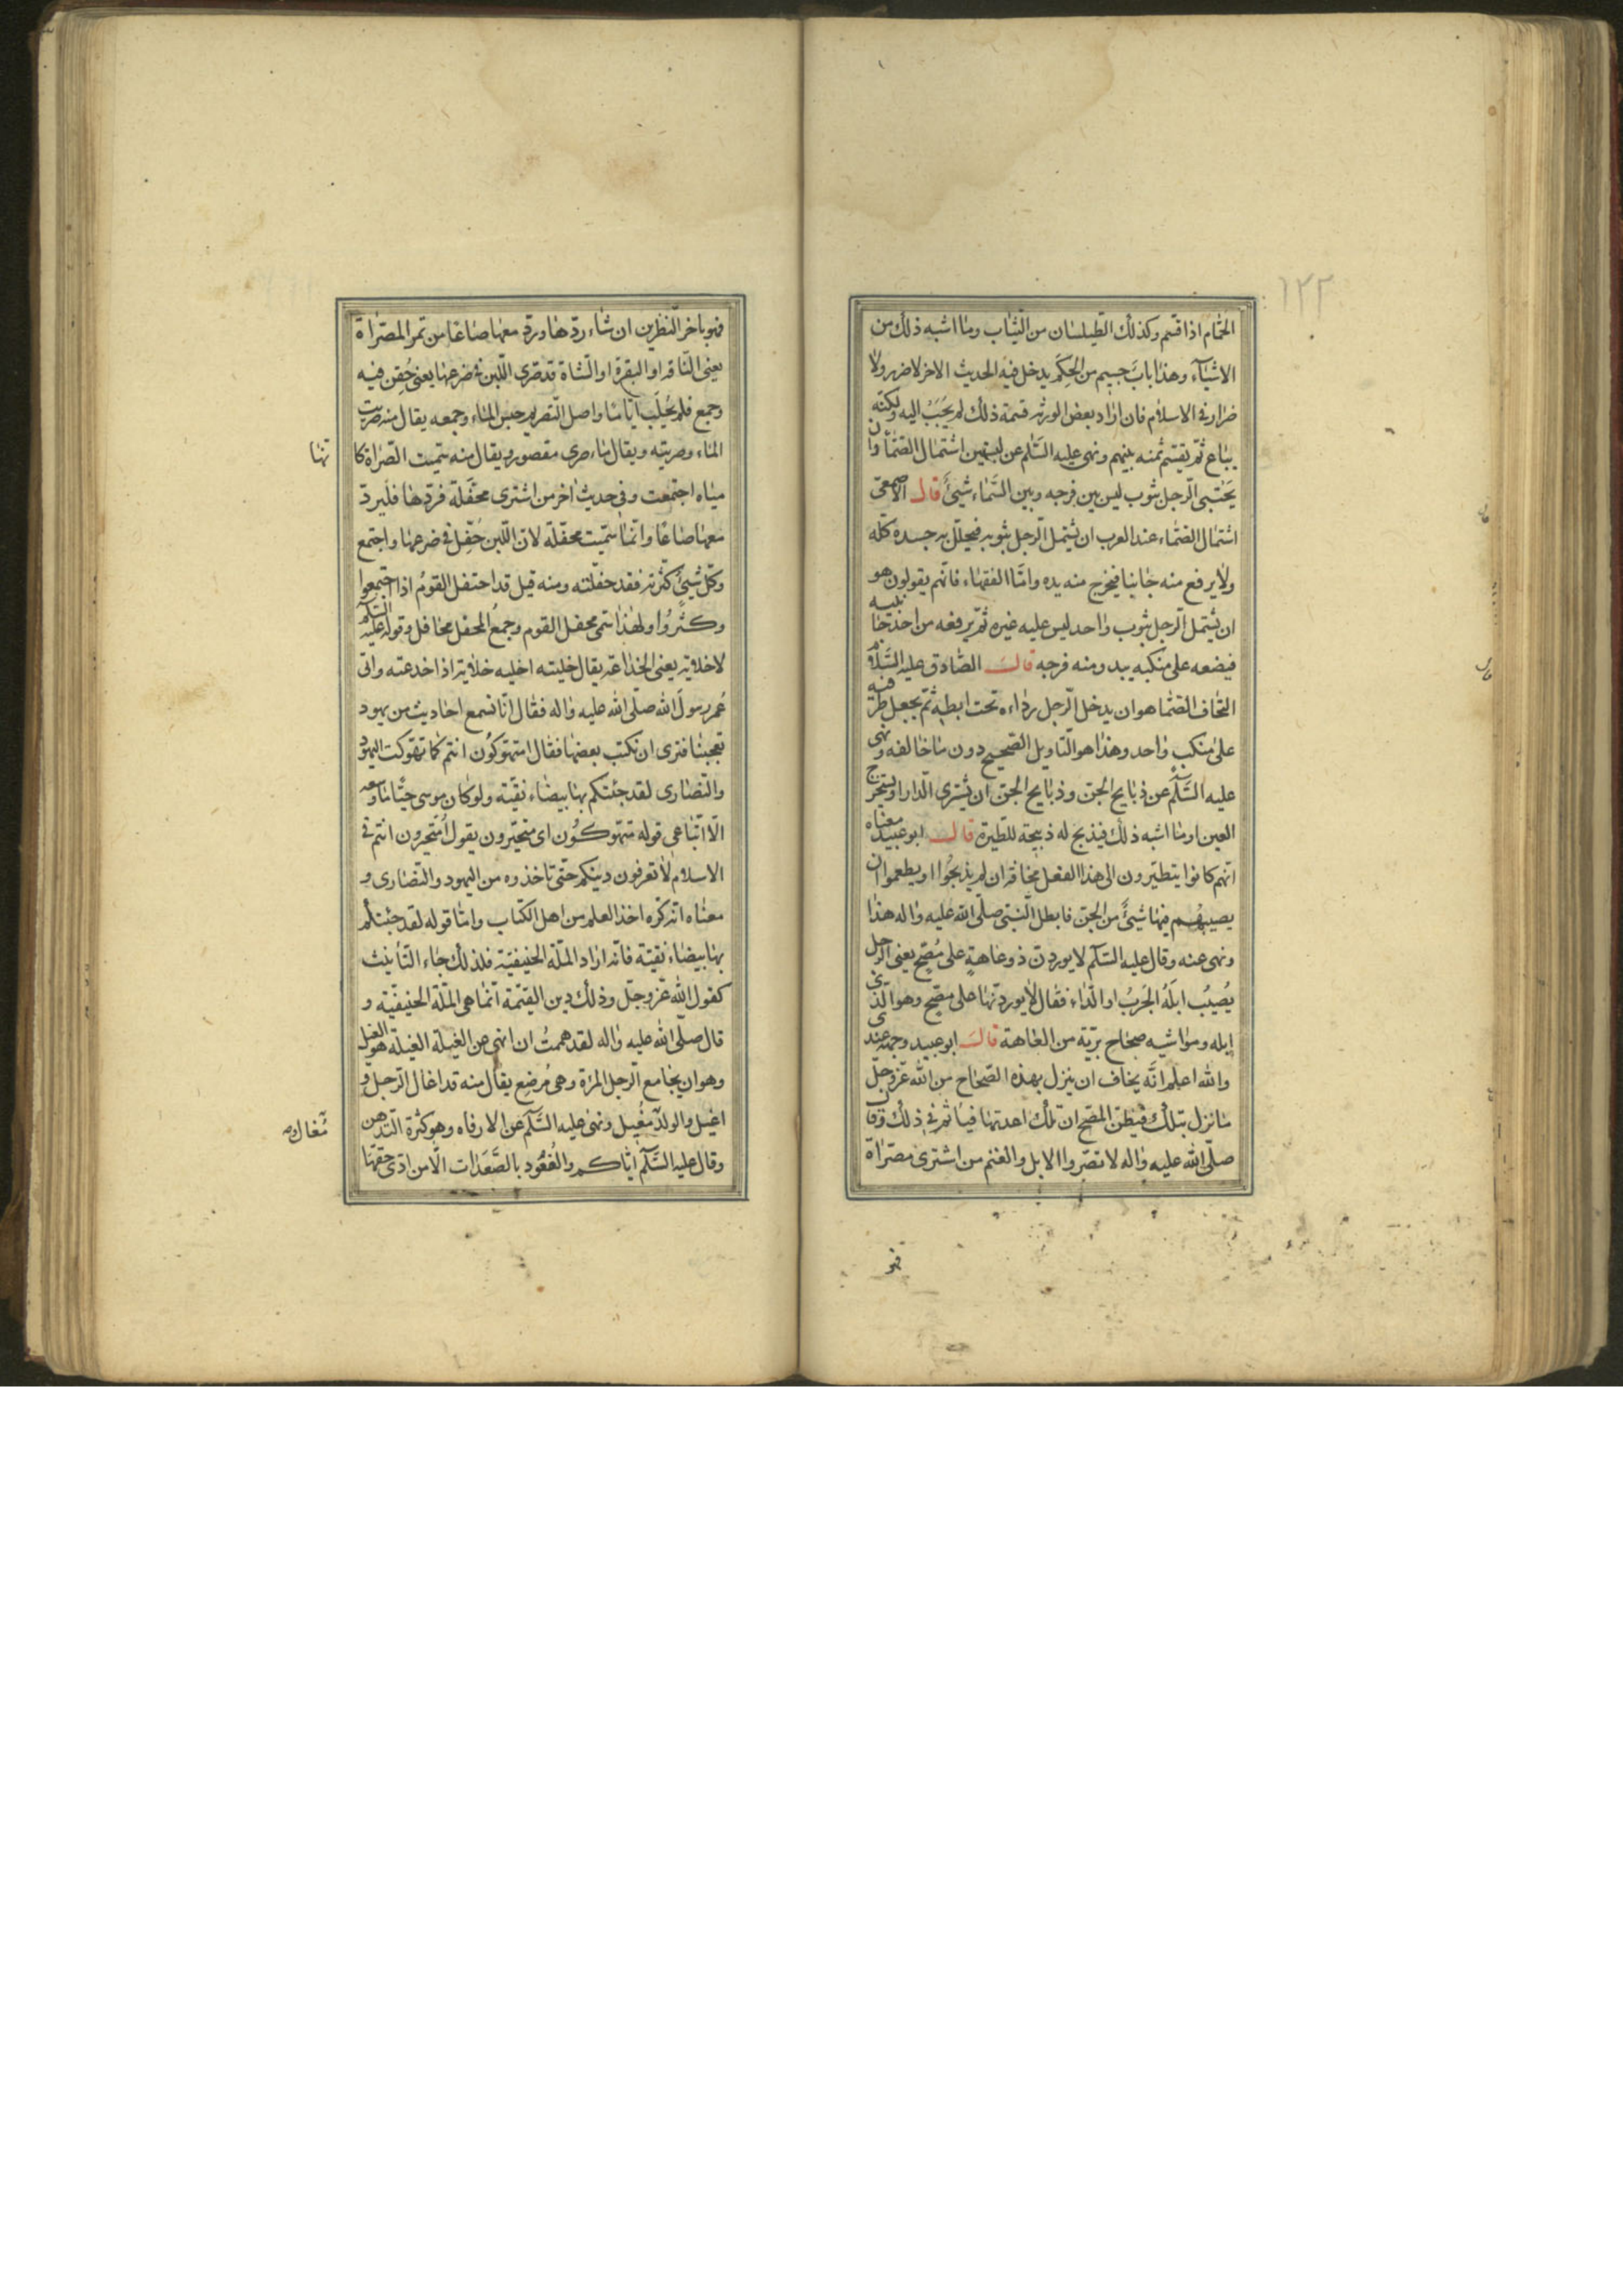 ١٢٢
الحمّام اذا قسم وكذلك الطّيلسان من الثّياب وما اشبه ذلك من
الاشياء وهذا باب جسيم من الحكم يدخل فيه الحديث الاخر لا ضرر ولا
ضرار فى الاسلام فان اراد بعض الورثه قسمة ذلك لم يُجَبْ اليه ولكنّه
يباع ثمّ يقتسم ثمنه بينهم ونهى عليه السّلم عن لبستين اشتمال الصّمّا وان
يَحْتبى الرّجل بثوب ليس بين فرجه وبين السّماء شئ قال الاصمعى
اشتمال الصّمّاء عند العرب ان يشتمل الرّجل بثوبه فيجلّل به جسده كلّه
ولا يرفع منه جانبا فيخرج منه يده وامّا الفقهاء فانّهم يقولون هو
ان يشتمل الرّجل بثوب واحد ليس عليه غيره ثمّ يرفعه من احد جانبيه
فيضعه على منكبه يبدو منه فرجه قال الصّادق عليه السّلام
التحاف الصّمّا هو ان يدخل الرّجل رداءه تحت ابطه ثمّ يجعل طرفيه
على منكب واحد وهذا هو التّاويل الصّحيح دون ما خالفه ونهى
عليه السّلم عن ذبايح الجنّ وذبايح الجنّ ان يشترى الدّار او يستخرج
العين وما اشبه ذلك فيذبح له ذبيحة للطّيرة قال ابو عبيد معناه
انّهم كانوا يتطيّرون الى هذا الفعل مخافة ان لم يذبحوا او يطعموا ان
يصيبهم فيها شئ من الجنّ فابطل النّبىّ صلّى الله عليه واله هذا
ونهى عنه وقال عليه السّلم لا يوردنّ ذو عاهة على مُصِحّ يعنى الرجل
يُصيبُ ابلَهُ الجَرَبُ او الدّاء فقال لا يوردنّها على مصحّ وهو الّذى
ابله ومواشيه صحاح بريّة من العاهة قال ابو عبيد وجهه عندى
والله اعلم انّه يخاف ان ينزل بهذه الصّحاح من الله عزّ وجلّ
ما نزل بتلك فيظنّ المصحّ ان تلك اعدتها فياثم فى ذلك وقال
صلّى الله عليه واله لا تصرّوا الابل والغنم من اشترى مصرّاة
فهو
فهو باخر النّظرين ان شاء ردّها وردّ معها صاعًا من تمر المصرّاة
يعنى النّاقة او البقرة او الشّاة قد صرّى اللّبن فى ضرعها يعنى حُقِن فيه
وجمع فلم يُحْلَب ايّامًا واصل التّصريه حبس الماء وجمعه يقال منه صريت
الماء وصرّيته ويقال ماء صرى مقصور ويقال منه سمّيت الصّراة كانّها
مياه اجتمعت وفى حديث اخر من اشترى محفّلة فردّها فليردّ
معها صاعًا وانّما سمّيت محفّلة لانّ اللّبن حُفِّل فى ضرعها واجتمع
وكلّ شئٍ كثّرته فقد حفّلته ومنه قيل قد احتفل القومُ اذا اجتمعوا
وكثُروا ولهذا سمّى محفل القوم وجمعُ المحفل محافل وقوله عليه السّلم
لا خلابة يعنى الخداعة يقال خلبته اخلبه خلابة اذا خدعته واتى
عُمر رسولَ الله صلّى الله عليه واله فقال انّا نسمع احاديث من يهود
تعجبنا فترى ان نكتب بعضها فقال امتهوّكون انتم كما تهوّكت اليهود
والنّصارى لقد جئتكم بها بيضاء نقيّة ولو كان موسى حيًّا ما وسعه
الّا اتّباعى قوله متهوّكون اى متحيّرون يقول أمتحيرون انتم فى
الاسلام لا تعرفون دينكم حتّى تاخذوه من اليهود والنّصارى و
معناه انّه كره اخذ العلم من اهل الكتاب وامّا قوله لقد جئتكم
بها بيضاء نقيّة فانّه اراد الملّة الحنيفيّة فلذلك جاء التّأنيث
كقول الله عزّ وجلّ وذلك دين القيّمة انّما هى الملّة الحنيفيّة و
قال صلّى الله عليه واله لقد هممتُ ان انهى عن الغيلة الغيلة هو الغيل
وهو ان يجامع الرّجل المرأة وهى مُرضِع يقال منه قد اغال الرّجل و
اغيل والولد مُغيل ونهى عليه السّلم عن الارفاه وهو كثرة التّدهن
مُغال و
وقال عليه السّلم ايّاكم والقُعُود بالصّعَدات الّا من ادّى حقّها